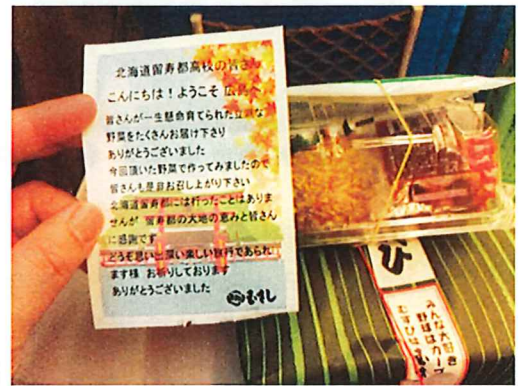 北海道留寿都高校の皆さん
こんにちは！ようこそ 広島へ
皆さんが一生懸命育てられた立派な
野菜をたくさんお届け下さり
ありがとうございました
今回頂いた野菜で作ってみましたので
皆さんも是非お召し上がり下さい
北海道留寿都には行ったことはありま
せんが 留寿都の大地の恵みと皆さん
に感謝です
どうぞ思い出深い楽しい旅行であられ
ます様 お祈りしております
ありがとうございました
むすし
び
みんな大好き
野球はカープ
むすびは